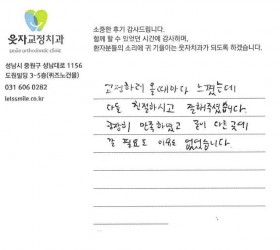 웃자교정치과
smile orthodontic clinic
성남시 중원구 성남대로 1156
도림빌딩 3-5층(퀴즈노건물)
031 606 0282
letssmile.co.kr
소중한 후기 감사드립니다.
함께 할 수 있었던 시간에 감사하며,
환자분들의 소리에 귀 기울이는 웃자치과가 되도록 하겠습니다.
교정하러 올때마다 느꼈는데
다들 친절하시고 잘해주셨습니다.
굉장히 만족하였고 굳이 다른곳에
갈 필요도 이유도 없었습니다.